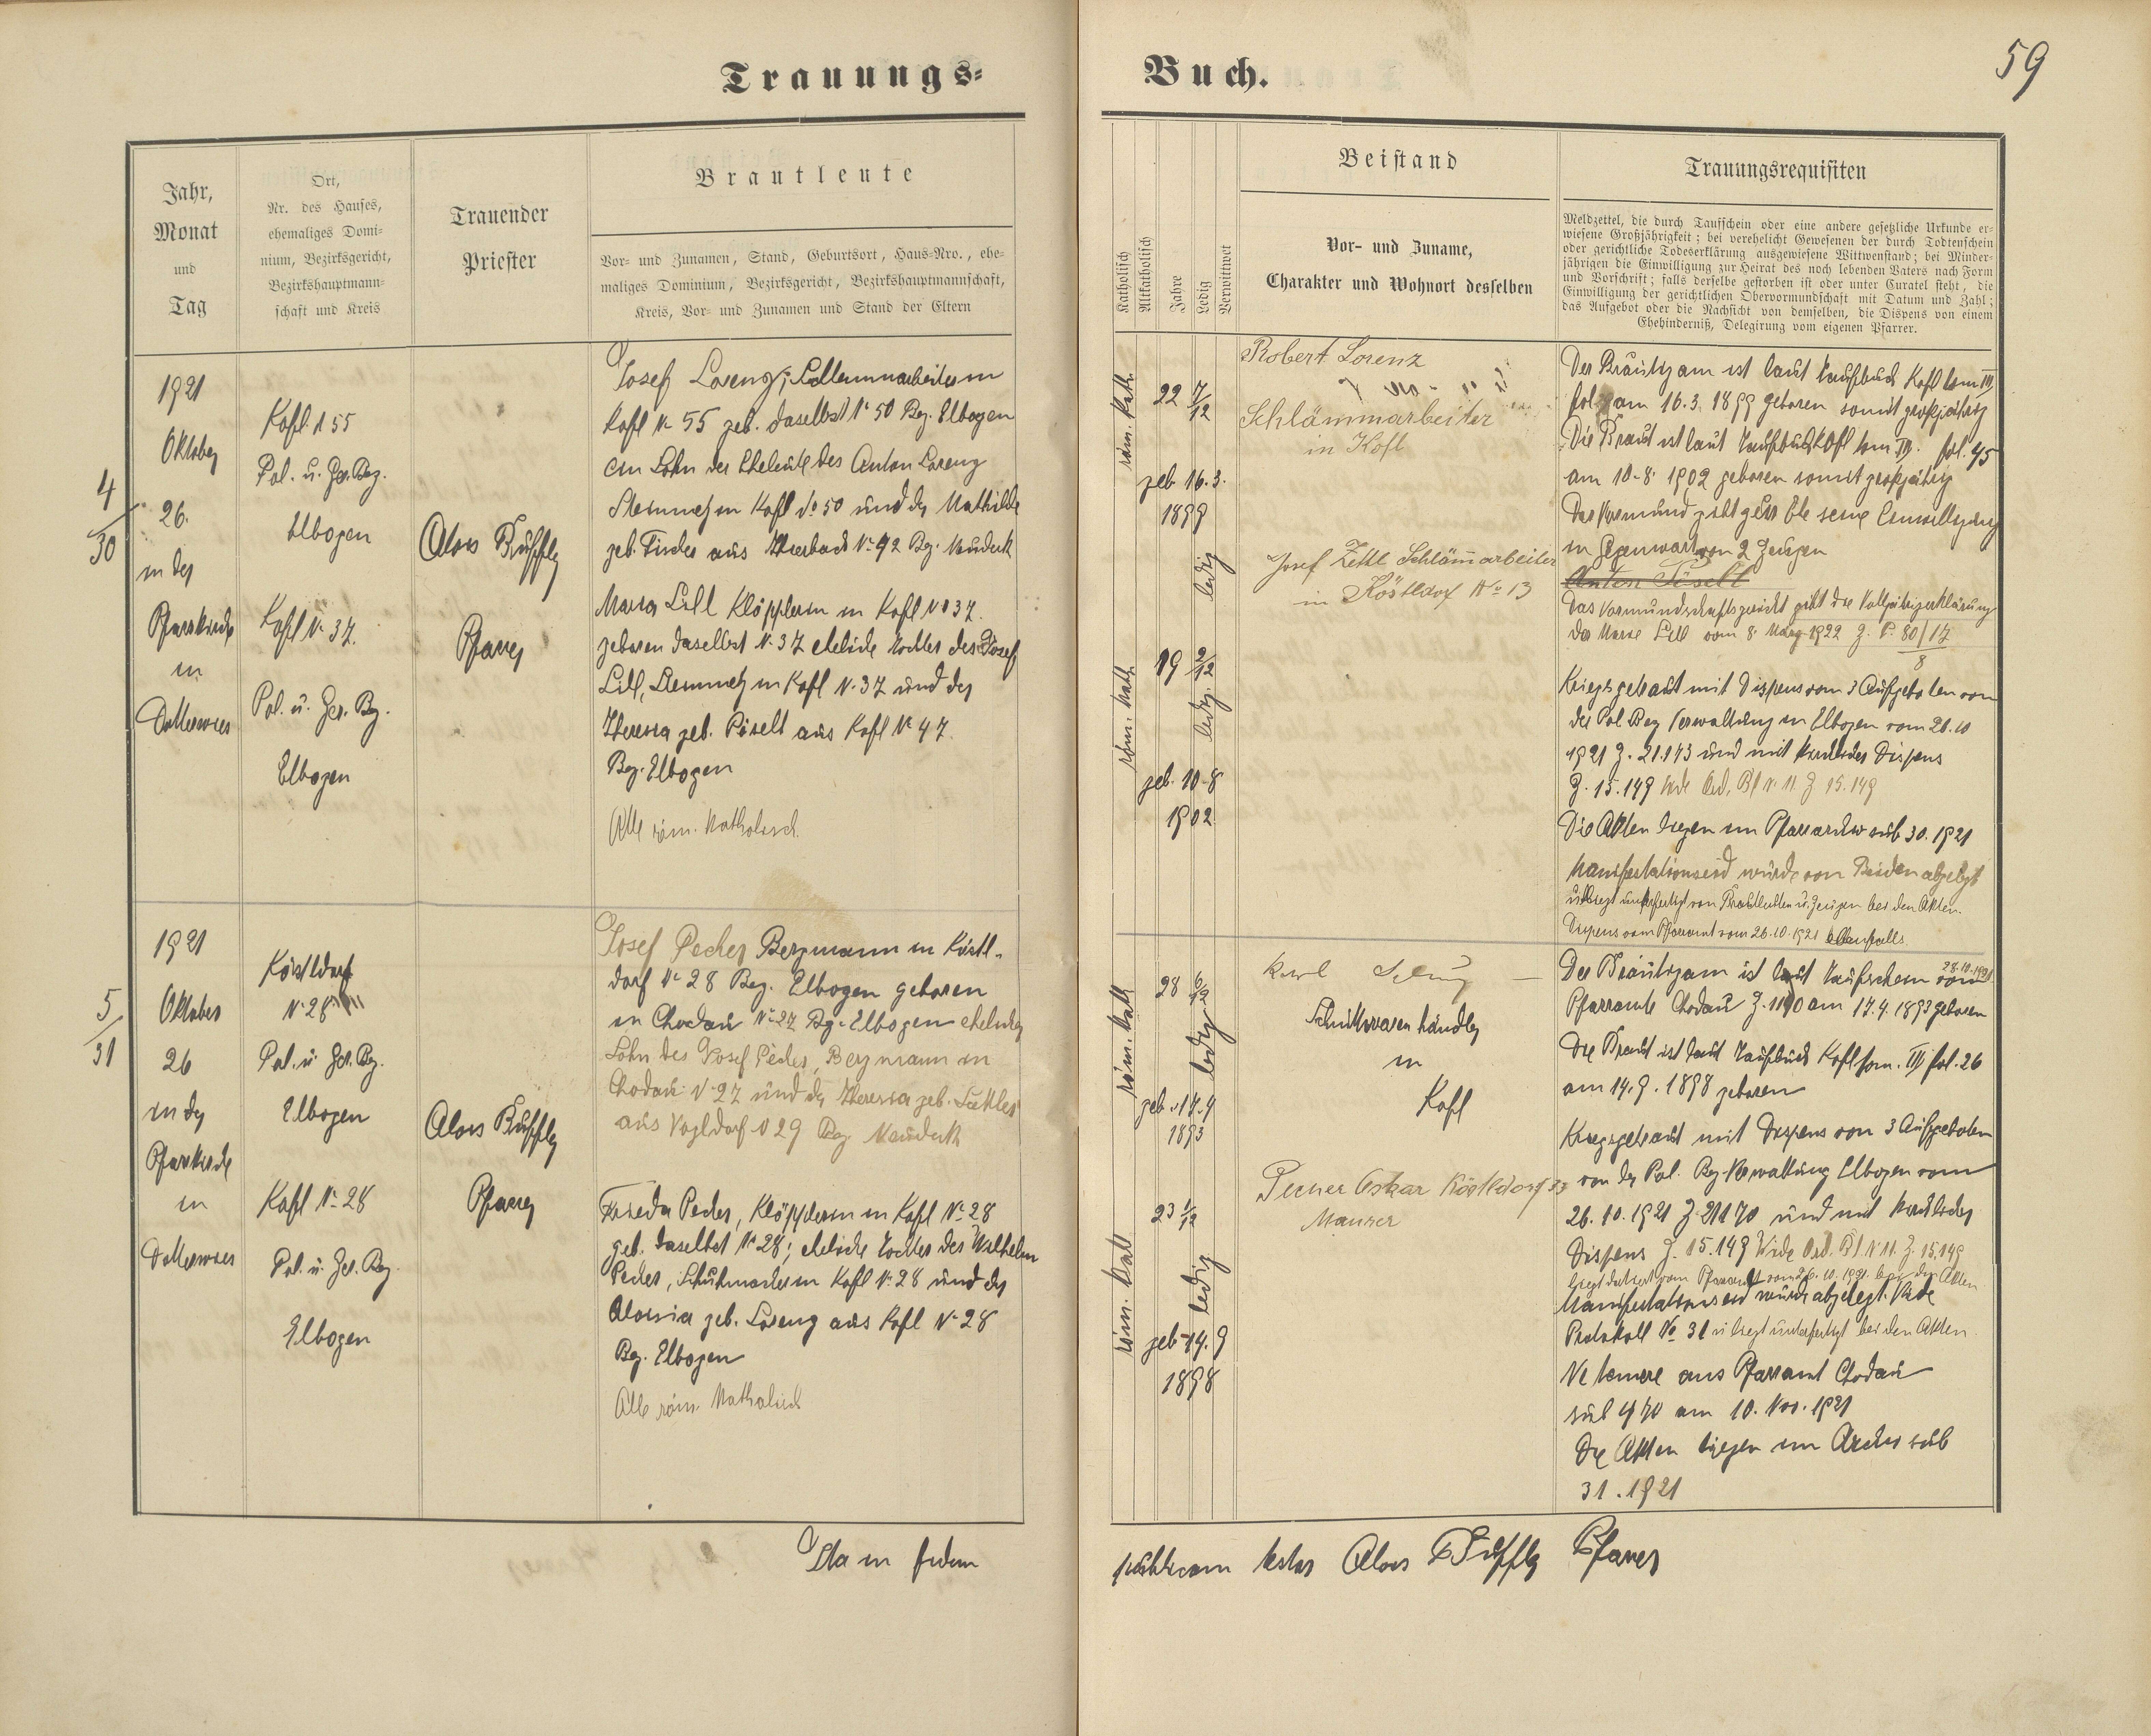 Trauungs-
Buch.
59
Jahr,
Monat
und
Tag
Ort,
Nr. des Hauses,
ehemaliges Domi-
nium, Bezirksgericht,
Bezirkshauptmann-
schaft und Kreis
Trauender
Priester
Brautleute
Vor- und Zunamen, Stand, Geburtsort, Haus-Nro., ehe-
maliges Dominium, Bezirksgericht, Bezirkshauptmannschaft,
Kreis, Vor- und Zunamen und Stand der Eltern
Katholisch
Altkatholisch
Jahre
Ledig
Verwittwet
Beistand
Vor- und Zuname,
Charakter und Wohnort desselben
Trauungsrequisiten
Meldzettel, die durch Taufschein oder eine andere gesetzliche Urkunde er-
wiesene Großjährigkeit; bei verehelicht Gewesenen der durch Todtenschein
oder gerichtliche Todeserklärung ausgewiesene Wittwenstand; bei Minder-
jährigen die Einwilligung zur Heirat des noch lebenden Vaters nach Form
und Vorschrift; falls derselbe gestorben ist oder unter Curatel steht, die
Einwilligung der gerichtlichen Obervormundschaft mit Datum und Zahl;
das Aufgebot oder die Nachsicht von demselben, die Dispens von einem
Ehehinderniß, Delegirung vom eigenen Pfarrer.
4/30
1921
Oktober
26.
in der
Pfarrkirche
in
Kofl N 55
Pol. u. Ger. Bez.
Elbogen
Kofl N. 37.
Pol. u. Ger. Bez.
Elbogen
Alois
Pfarrer
Josef Lorenz,
Kofl N. 55 geb. daselbst N. 50 Bez. Elbogen
ein Sohn der Eheleute des Anton Lorenz
Steinmetz in Kofl No 50 und der Mathilde
geb. Fischer aus N. 42 Bez. Neudek
Maria Lill Klöpplerin in Kofl No 37.
geboren daselbst N. 37 eheliche Tochter des Josef
Lill, Steinmetz in Kofl N. 37 und der
Theresia geb. Püselt aus Kofl N. 47.
Bez. Elbogen
Alle röm. Katholisch.
röm. kath.
22 7/12
geb. 16. 3.
1899
ledig
röm. kath.
19 2/12
ledig.
geb. 10-8
1902
Robert Lorenz
Schlämmarbeiter
in Kofl
Josef Zettl Schlämmarbeiter
in Köstldorf No 13
Der Bräutigam ist laut Taufbuch Kofl tom III
fol am 16. 3. 1899 geboren somit großjährig
Die Braut ist laut Taufbuch Kofl tom III. fol. 45
am 10-8. 1902 geboren somit großjährig
Der Vormund gibt seine Einwilligung
in Gegenwart von 2 Zeugen
Anton Püselt
Das Vormundschaftsgericht gibt die Volljährigerklärung
der Marie Lill vom 8. März 1922 Z. P. 80/17
8
Kriegsgetraut mit Dispens vom 3 Aufgeboten von
der Pol. Bez. Verwaltung in Elbogen vom 26. 10
1921 Z. 21.143 und mit kirchlicher Dispens
Z. 15.149 Vide Ord. Bl. N. 11. Z 15.149
Die Akten liegen im Pfarrarchiv sub 30. 1921
Manifestationseid wurde von Beiden abgelegt
u. liegt unterfertigt von Brautleuten u. Zeugen bei den Akten.
Dispens vom Pfarramt vom 26.10.1921 ebenfalls.
5/31
1921
Oktober
26
in der
Pfarrkirche
in
Köstldorf
N. 28
Pol. u. Ger. Bez.
Elbogen
Kofl N. 28
Pol. u. Ger. Bez.
Elbogen
Alois
Pfarrer
Josef Pecher Bergmann in Köstl-
dorf N. 28 Bez. Elbogen geboren
in Chodau N. 27 Bez. Elbogen ehelicher
Sohn des Josef Pecher, Bergmann in
Chodau N. 27 und der Theresia geb.
aus Vogldorf N 29 Bez. Neudek
Frieda Pecher, Klöpplerin in Kofl N. 28
geb. daselbst N. 28; eheliche Tochter des Wilhelm
Pecher, Schuhmacher in Kofl N. 28 und der
Aloisia geb. Lorenz aus Kofl N. 28
Bez. Elbogen
Alle röm. Katholisch
röm. kath
28 6/12
ledig
geb. 17. 4
1893
röm. kath
23 1/12
ledig
geb. 14. 9
1898
Karl
Schnittwarenhändler
in
Kofl
Pecher Oskar Köstldorf 33
Maurer
Der Bräutigam ist laut Taufschein vom 28.10.1921
Pfarramte Chodau Z. 1190 am 17. 4. 1893 geboren
Die Braut ist laut Taufbuch Kofl tom. III fol. 26
am 14. 9. 1898 geboren
Kriegsgetraut mit Dispens von 3 Aufgeboten
von der Pol. Bez. Verwaltung Elbogen vom
26. 10. 1921 Z 21170 und mit kirchlicher
Dispens Z. 15.149 Vide Ord. Bl. N. 11. Z. 15.149
liegt datiert vom Pfarramt vom 26. 10. 1921. bei den Akten
Manifestationseid wurde abgelegt. Vide
Protokoll No 31 u. liegt unterfertigt bei den Akten
Ne temere aus Pfarramt Chodau
sub 470 am 10. Nov. 1921
Die Akten liegen im Archiv sub
31. 1921
Ita in fidem
publicam testor Alois Pfarrer